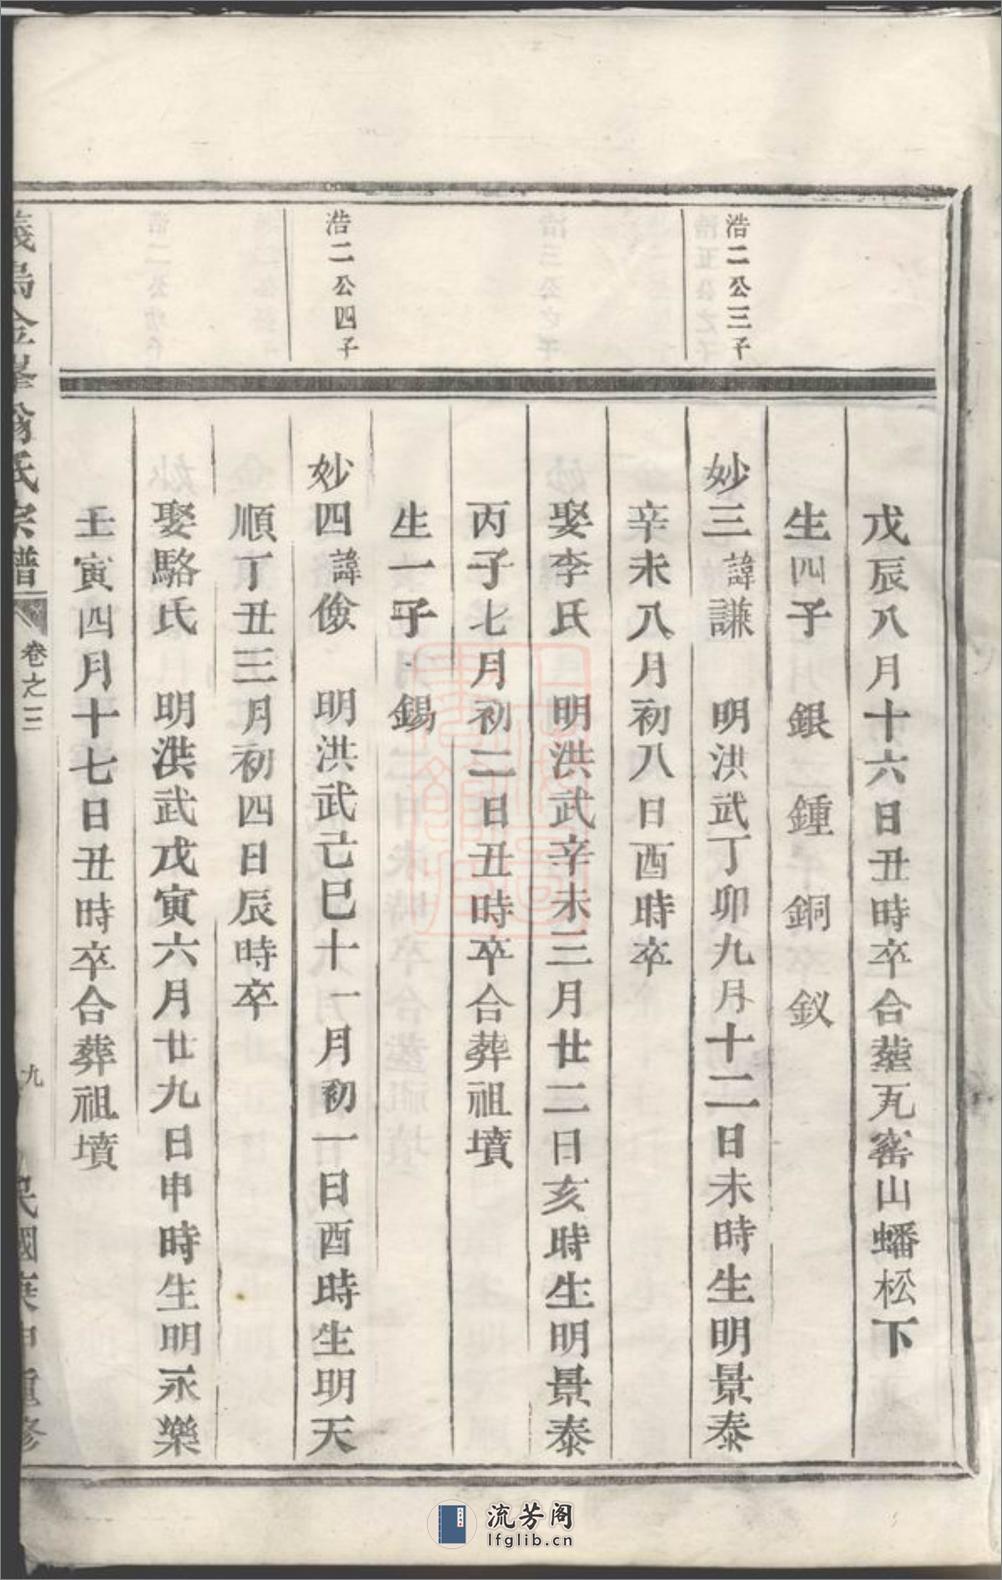 戊辰八月十六日丑時卒合塟瓦窰山蟠松下
生四子 銀 鍾 銅 釵
浩二公三子
妙三諱謙 明洪武丁卯九月十二日未時生明景泰
辛未八月初八日酉時卒
娶李氏 明洪武辛未三月廿二日亥時生明景泰
丙子七月初二日丑時卒合葬祖墳
生一子 錫
浩二公四子
妙四諱儉 明洪武己巳十一月初一日酉時生明天
順丁丑三月初四日辰時卒
娶駱氏 明洪武戊寅六月廿九日申時生明永樂
壬寅四月十七日丑時卒合葬祖墳
氏宗譜
卷之三
九
民國庚申重修
流芳阁
lfglib.cn